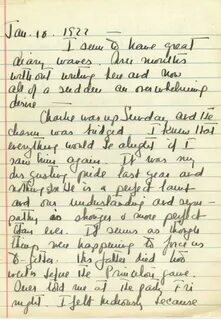 Jan. 10. 1922 —
I seem to have great
diary waves. Over months
without writing here and now
all of a sudden an overwhelming
desire —
Charlie was up Sunday and the
chasm was bridged. I knew that
everything would be alright if I
saw him again. It was my
disgusting pride last year and
nothing else. He is a perfect lamb
and our understanding and sym-
pathy is stronger & more perfect
than ever. It seems as though
things were happening to force us
together. His father died two
weeks before the Princeton game.
Over told me at the party Fri
night. I felt hideously because